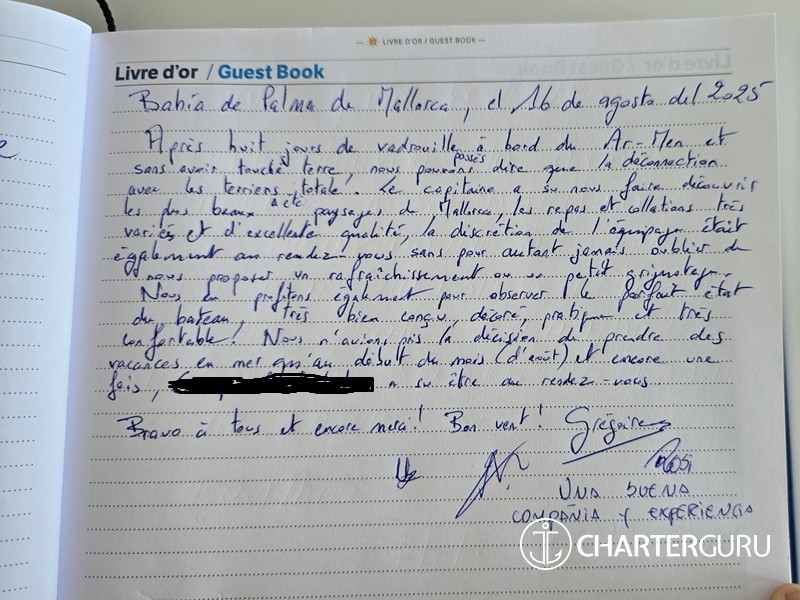 LIVRE D'OR / GUEST BOOK
Livre d'or / Guest Book
Bahía de Palma de Mallorca, el 16 de agosto del 2025
Après huit jours de vadrouille à bord du Ar-Men et
sans avoir touché terre, nous pouvons dire que la déconnection
passés
avec les terriens totale. Le capitaine a su nous faire découvrir
a été
les plus beaux paysages de Mallorca, les repas et collations très
variés et d'excellente qualité, la discrétion de l'équipage était
également au rendez-vous sans pour autant jamais oublier de
nous proposer un rafraîchissement ou un petit grignotage.
Nous en profitons également pour observer le parfait état
du bateau, très bien conçu, décoré, pratique et très
confortable. Nous n'avions pris la décision de prendre des
vacances en mer qu'au début du mois (d'août) et encore une
fois, a su être au rendez-vous.
Bravo à tous et encore merci! Bon vent! Grégoire
Rosi
UNA BUENA
COMPAÑIA Y EXPERIENCIA
CHARTERGURU